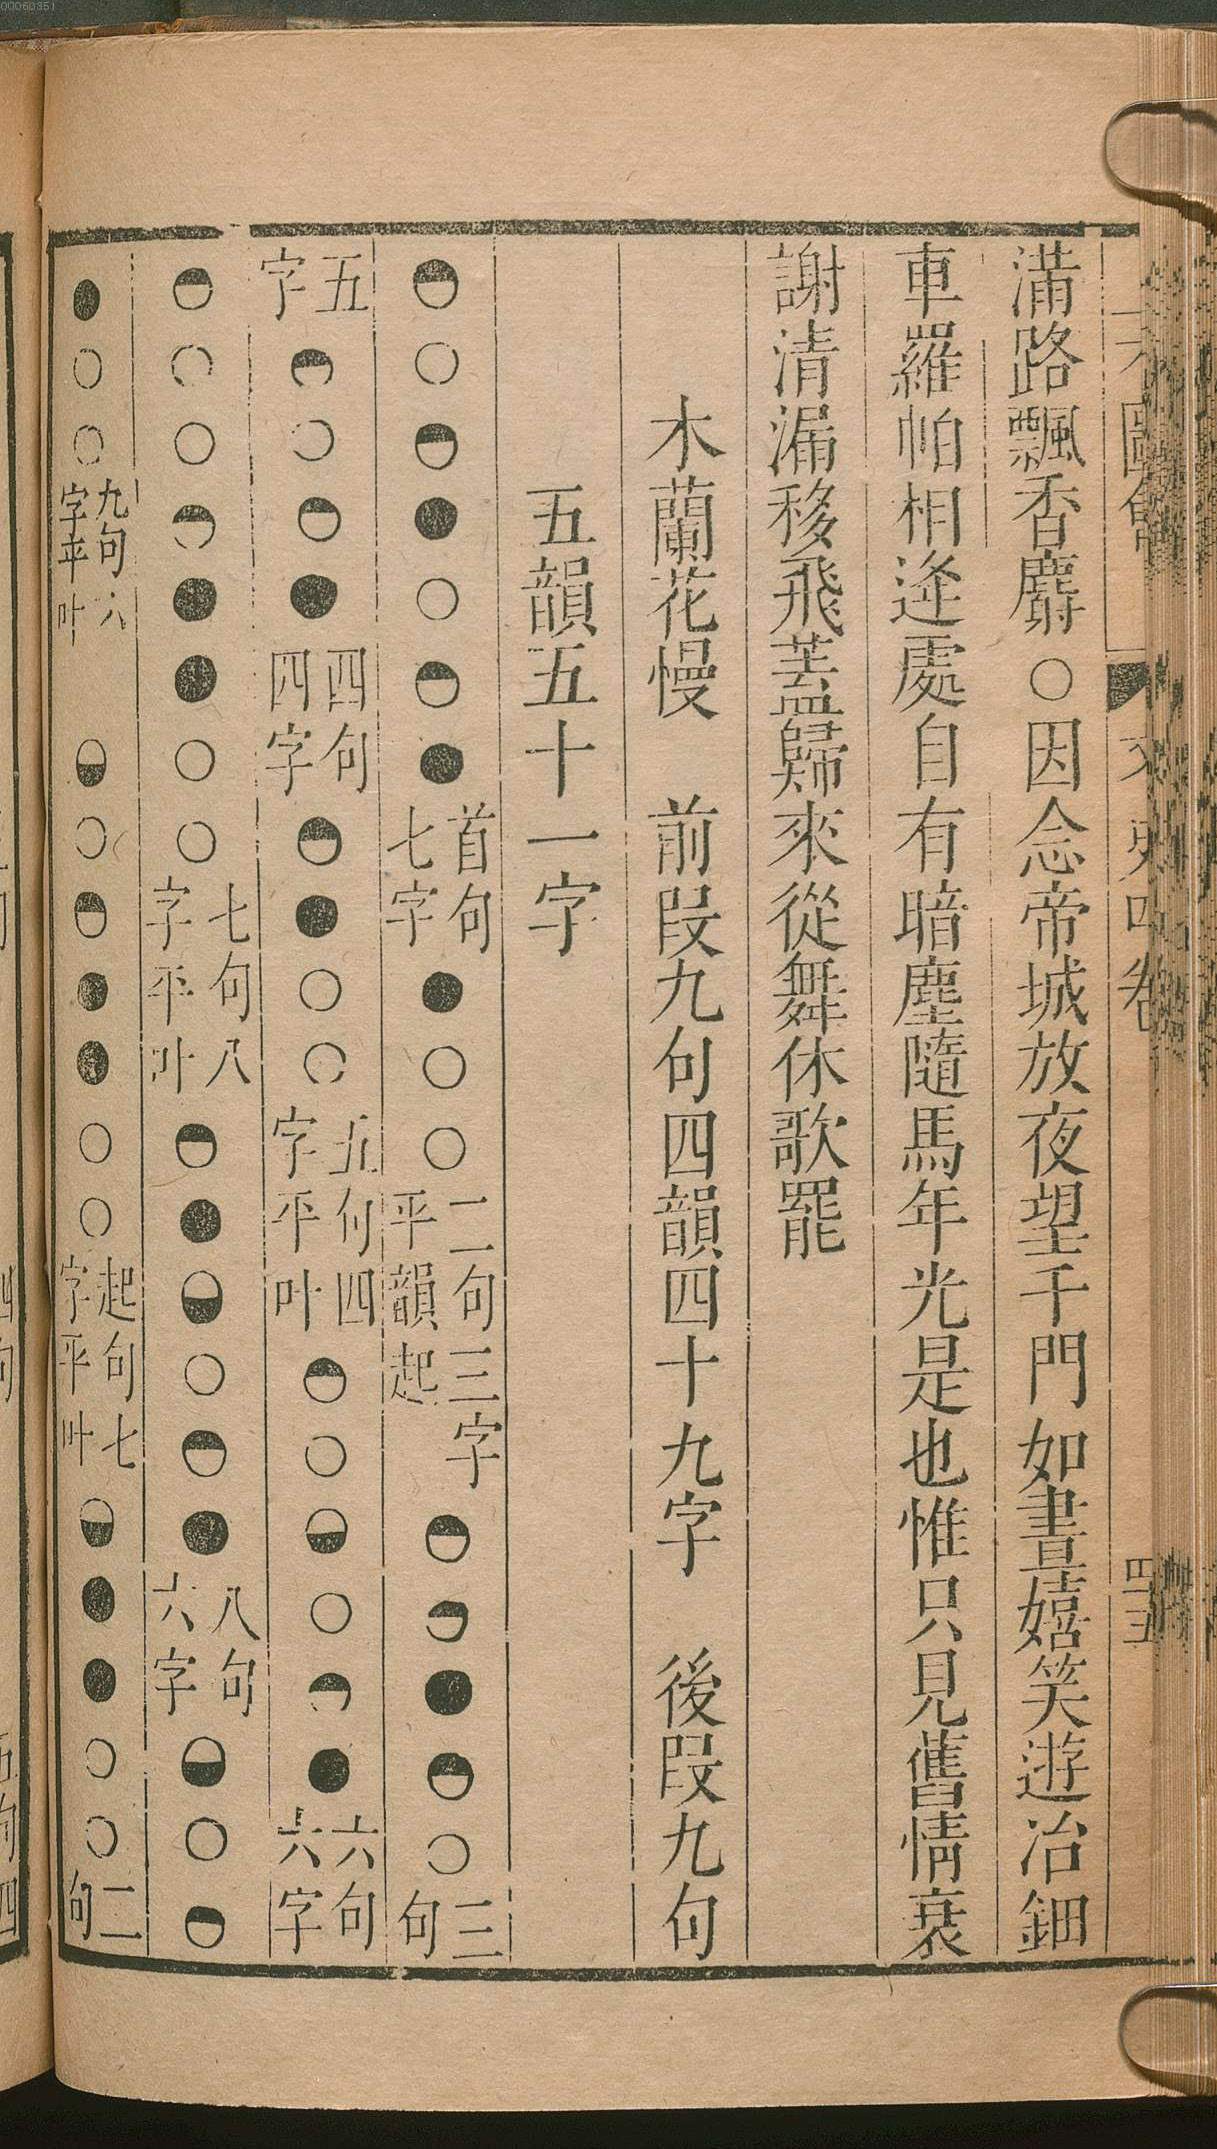 滿路飄香麝○因念帝城放夜望千門如晝嬉笑遊冶鈿
車羅帕相逢處自有暗塵隨馬年光是也惟只見舊情衰
謝清漏移飛蓋歸來從舞休歌罷
木蘭花慢 前段九句四韻四十九字 後段九句
五韻五十一字
◓○◓●○◓●首句七字●○○二句三字平韻起◓◓●◓○三句
五字◓○◓●四句四字◓●○○五句四字平叶◓○◒○◓●六句六字
◓○○◓●●○○七句八字平叶◓●◒○◓●八句六字◒○◓
●○○九句六字平叶◒○◓●●○○起句七字平叶◒●●○○二句
三才圖會 文史四卷 四五
00060351